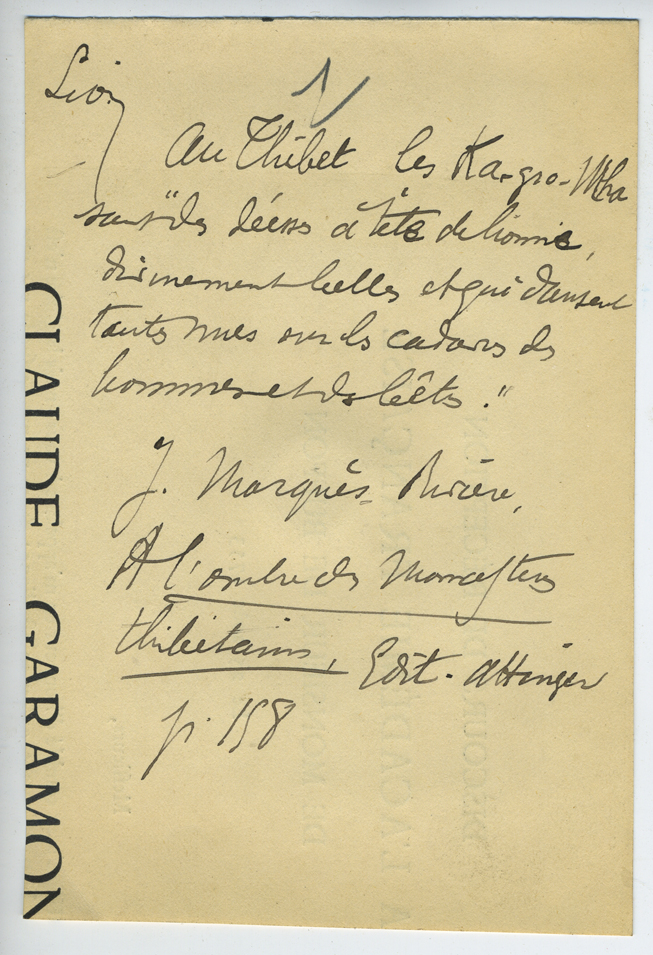 Lion
Au Thibet les Ka-gro-Mha
sont "des déesses à tête de lionne,
divinement belles et qui dansent
toutes nues sur les cadavres des
hommes et des bêtes."
J. Marquès-Rivière,
A l'ombre des Monastères
thibétains, Edit. Attinger
p. 158
CLAUDE GARAMON